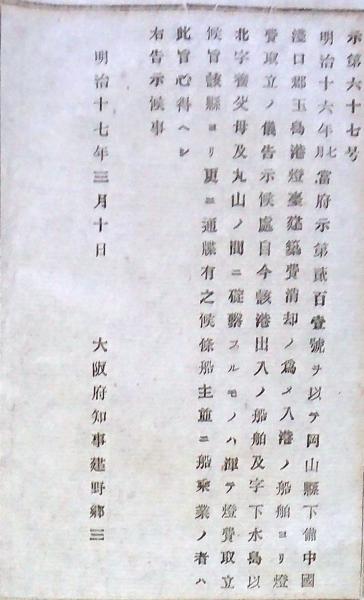 示第六十七号
明治十六年七月當府示第貳百壹號ヲ以テ岡山縣下備中國
淺口郡玉島港燈臺建築費消却ノ爲メ入港ノ船舶ヨリ燈
費取立ノ儀告示候處自今該港出入ノ船舶及字下水島以
北字養父母及丸山ノ間ニ碇繋スルモノハ渾テ燈費取立
候旨該縣ヨリ更ニ通牒有之候條船主並ニ船乘業ノ者ハ
此旨心得ヘシ
右告示候事
明治十七年三月十日
大阪府知事建野郷三